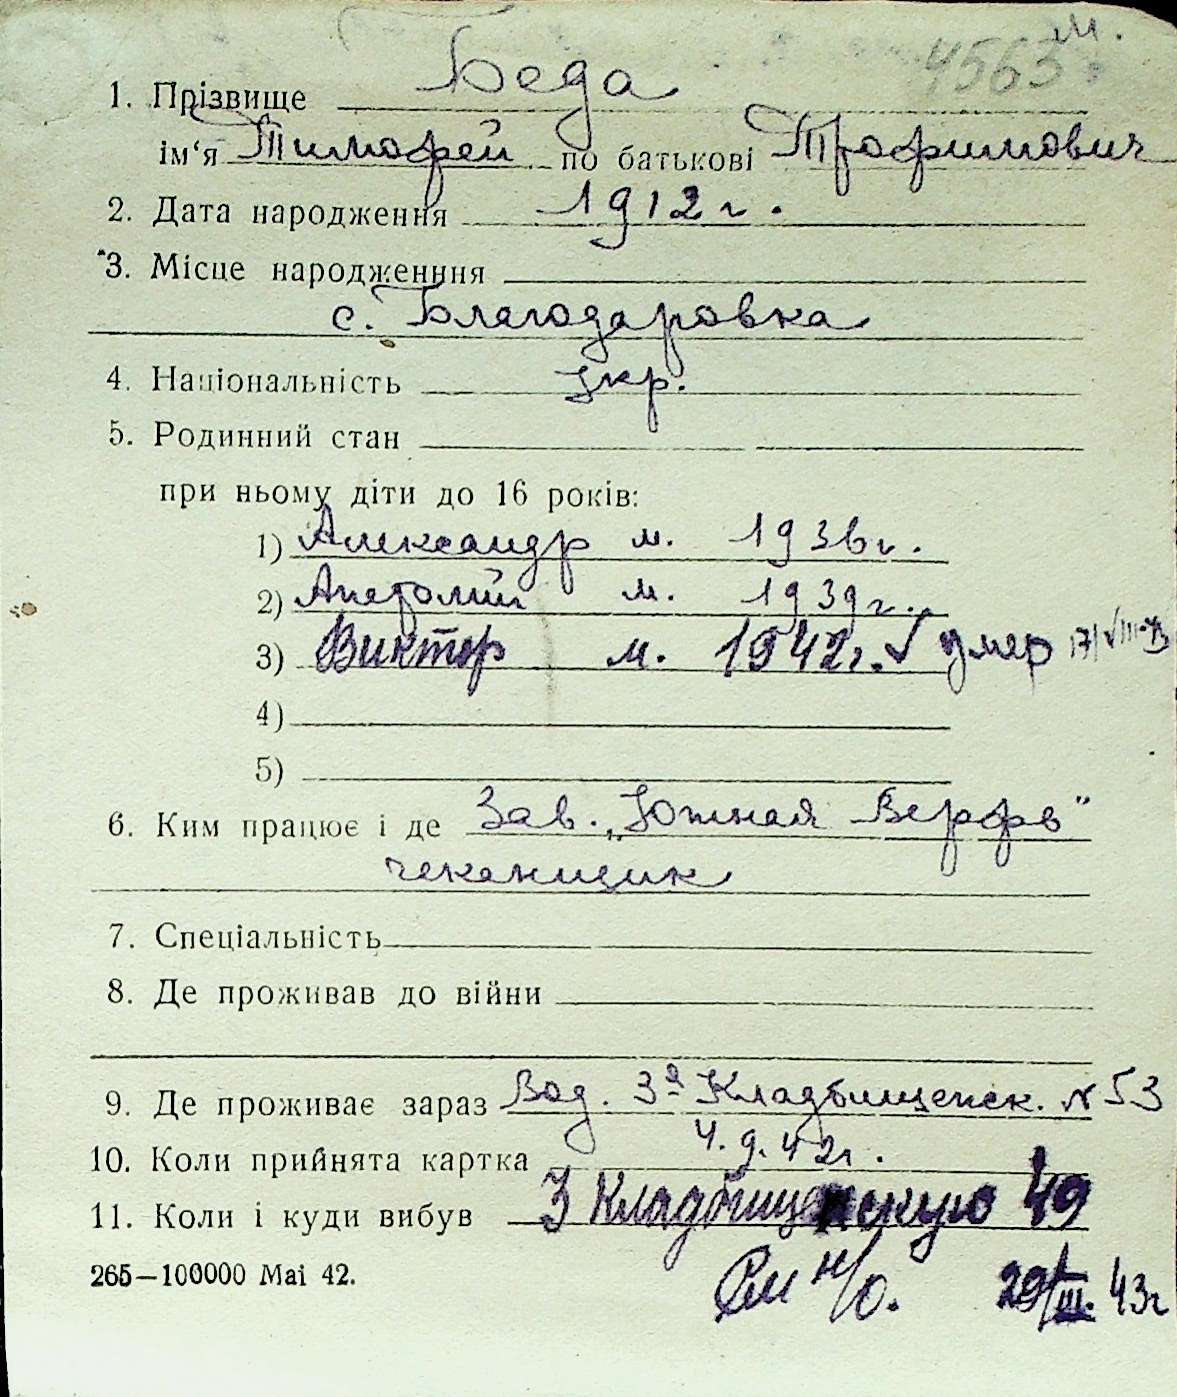 м.
4563
1. Прізвище Беда
ім‘я Тимофей по батькові Трофимович
2. Дата народження 1912 г.
3. Місце народженння
с. Благодаровка
4. Національність укр.
5. Родинний стан
при ньому діти до 16 років:
1) Александр м. 1936 г.
2) Анатолий м. 1939 г.
3) Виктор м. 1942 г. √ умер 17/VIII-43
4)
5)
6. Ким працює і де Зав. „Южная Верфь"
чеканщик
7. Спеціальність
8. Де проживав до війни
9. Де проживає зараз Вод. 3я Кладбищенск. № 53
10. Коли прийнята картка 4.9.42 г.
11. Коли і куди вибув 3 Кладбищенскую 49
265—100000 Mai 42.
См н/о. 29/III. 43 г